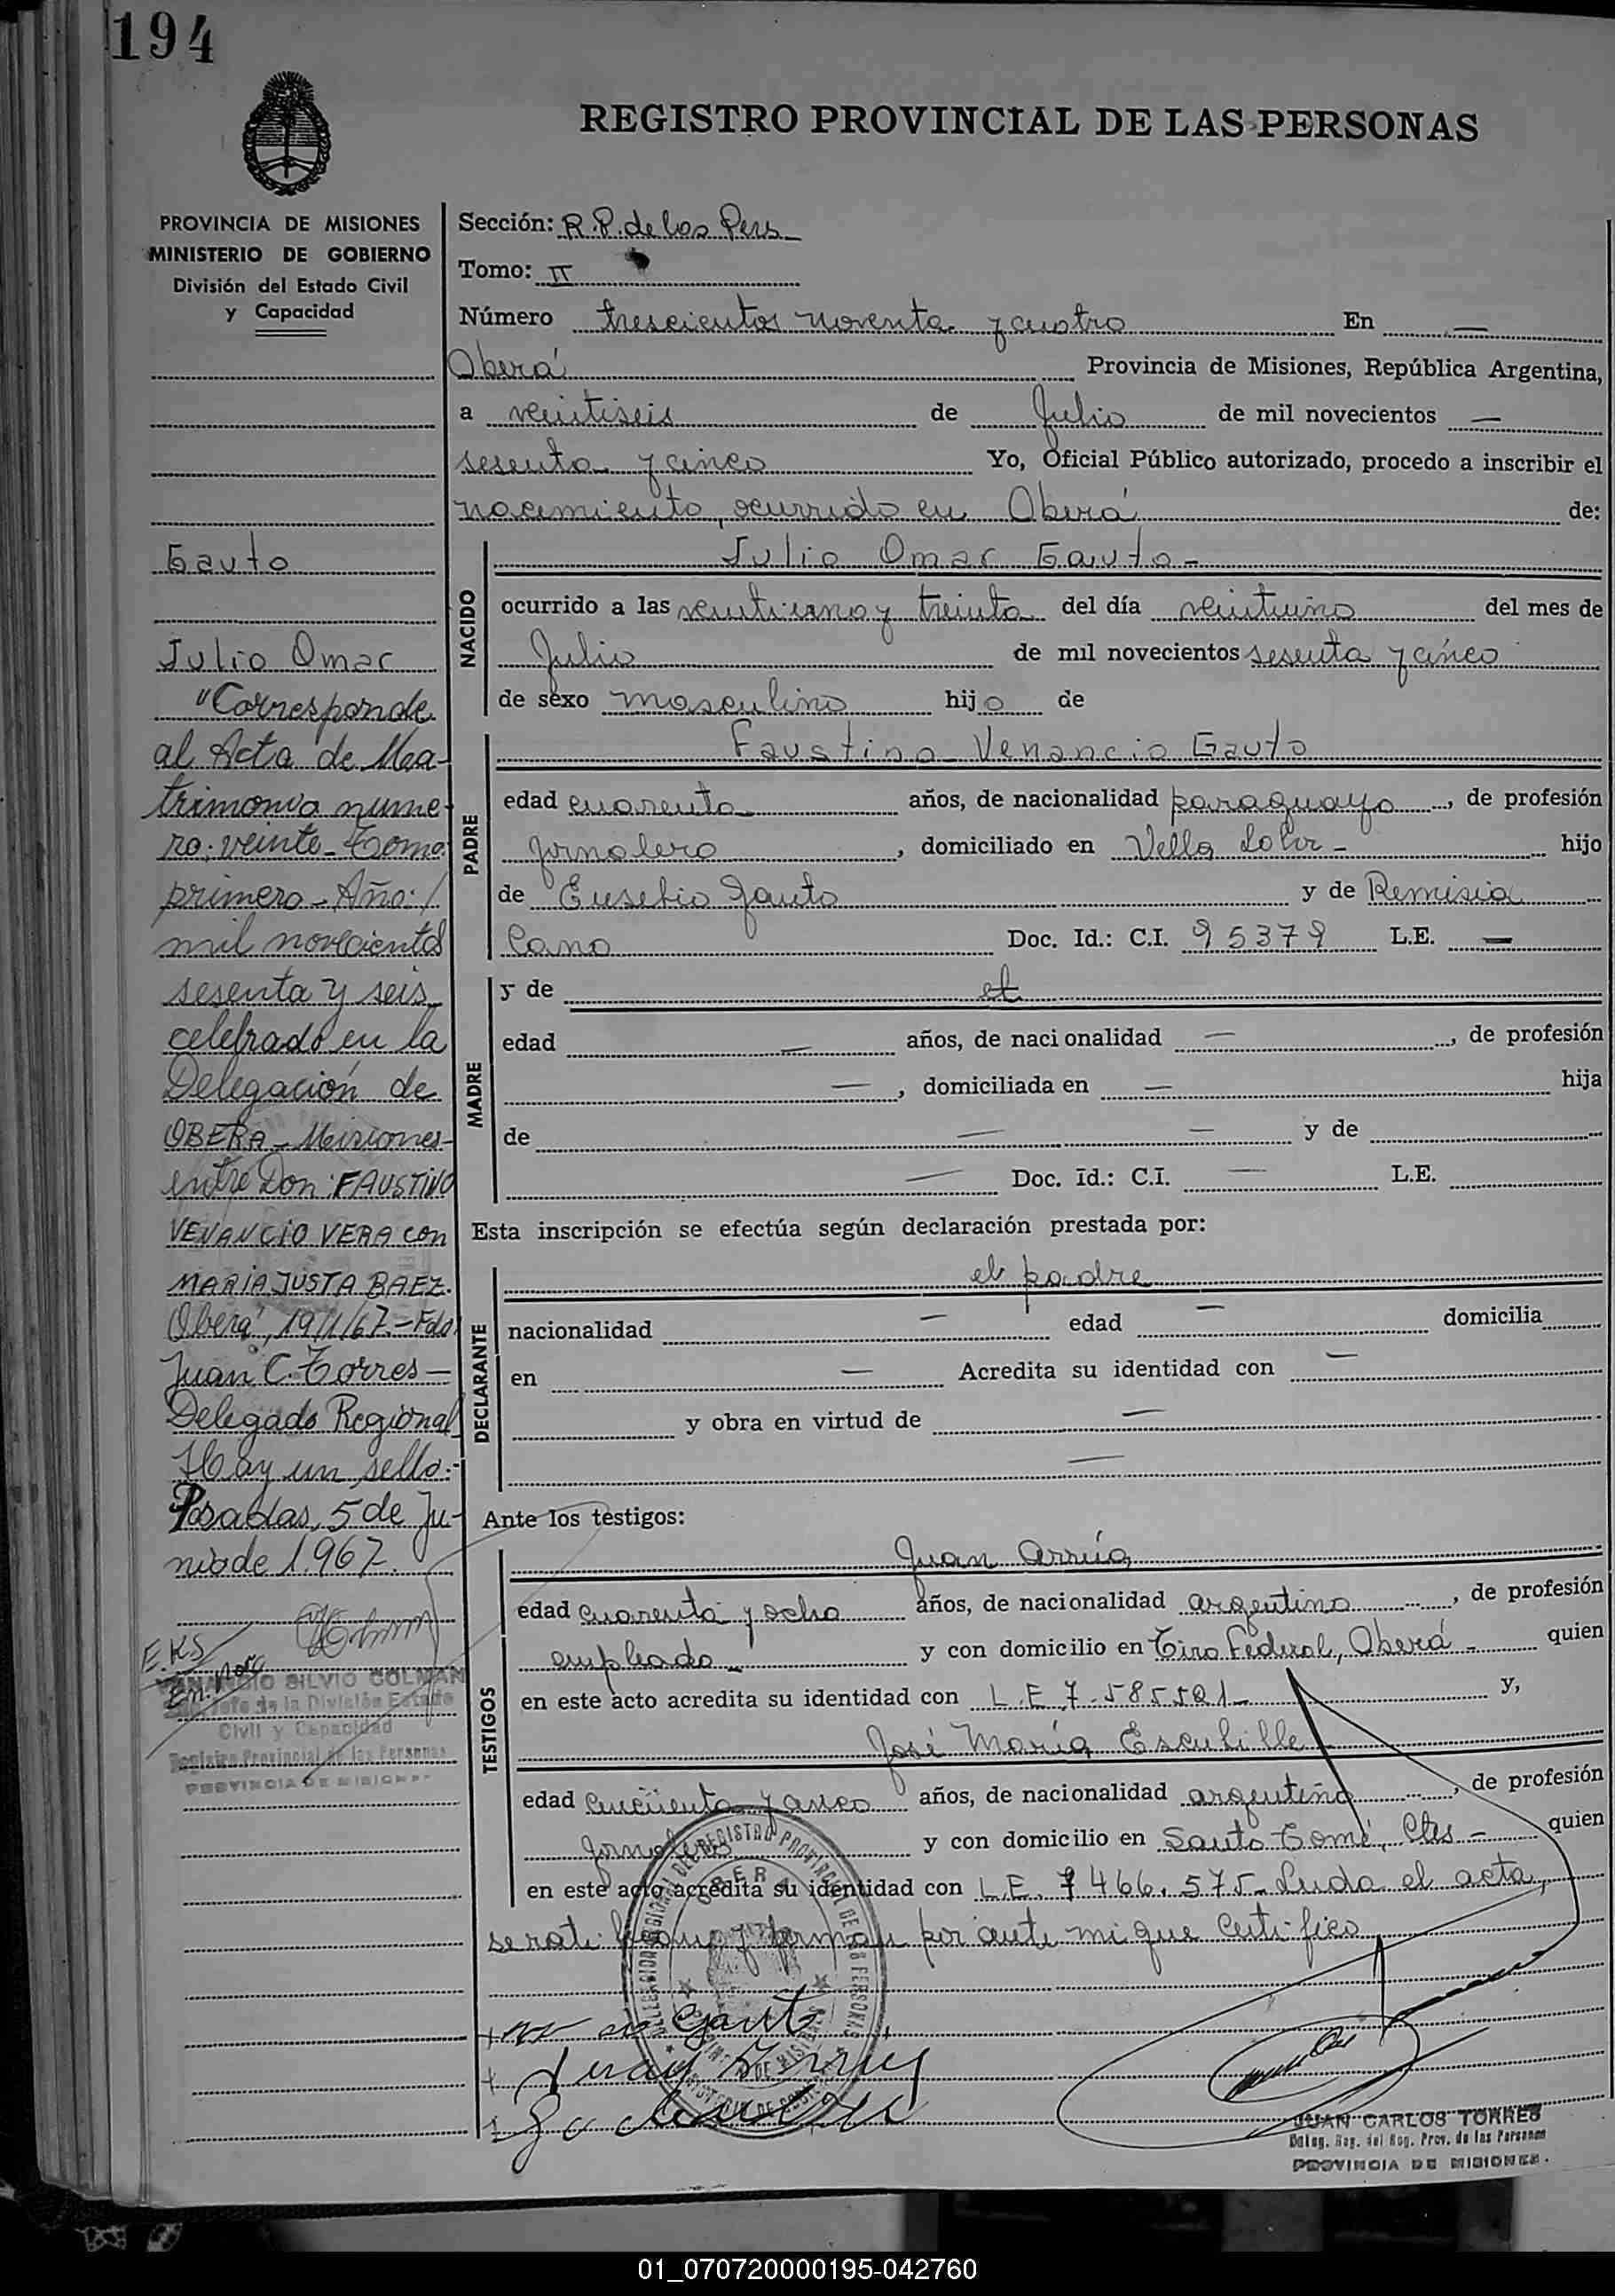 194
REGISTRO PROVINCIAL DE LAS PERSONAS
PROVINCIA DE MISIONES
MINISTERIO DE GOBIERNO
División del Estado Civil
y Capacidad
Gauto
Julio Omar
"Corresponde
al Acta de Ma-
trimonio nume-
ro: veinte - Tomo
primero - Año: /
mil novecientos
sesenta y seis
celebrado en la
Delegación de
OBERA - Misiones-
entre Don: FAUSTINO
VENANCIO VERA con
MARIA JUSTA BAEZ.
Oberá, 19/1/67.- Fdo
Juan C. Torres -
Delegado Regional
Hay un sello:-
Posadas, 5 de Ju-
nio de 1.967.
E.K.S
VENANCIO SILVIO COLMAN
Jefe de la División Estado
Civil y Capacidad
Registro Provincial de las Personas
PROVINCIA DE MISIONES
Sección: R.P. de las Pers
Tomo: II
Número trescientos noventa y cuatro En —
Oberá Provincia de Misiones, República Argentina,
a veintiseis de Julio de mil novecientos —
sesenta y cinco Yo, Oficial Público autorizado, procedo a inscribir el
nacimiento, ocurrido en Oberá de:
NACIDO
Julio Omar Gauto -
ocurrido a las veintiuno y treinta del día veintiuno del mes de
Julio de mil novecientos sesenta y cinco
de sexo masculino hijo de
PADRE
Faustino Venancio Gauto
edad cuarenta años, de nacionalidad paraguayo, de profesión
jornalero, domiciliado en Villa Lolor - hijo
de Eusebio Gauto y de Remisia
Cano Doc. Id.: C.I. 95379 L.E. —
MADRE
y de et
edad — años, de nacionalidad —, de profesión
—, domiciliada en — hija
de — — y de
— Doc. Id.: C.I. — L.E.
Esta inscripción se efectúa según declaración prestada por:
DECLARANTE
el padre
nacionalidad — edad — domicilia
en — Acredita su identidad con —
y obra en virtud de —
—
Ante los testigos:
TESTIGOS
Juan Arrúa
edad cuarenta y ocho años, de nacionalidad argentino, de profesión
empleado - y con domicilio en Tiro Federal, Oberá - quien
en este acto acredita su identidad con L.E 7.585.501 - y,
José María Escubille
edad cincuenta y cinco años, de nacionalidad argentino, de profesión
jornalero y con domicilio en Santo Tomé, Ctes - quien
en este acto acredita su identidad con L.E. 7466.575 - Leida el acta,
se ratifican y firman por ante mi que certifico
Gauto
Juan Arrua
JUAN CARLOS TORRES
Deleg. Reg. del Reg. Prov. de las Personas
PROVINCIA DE MISIONES.
01_070720000195-042760